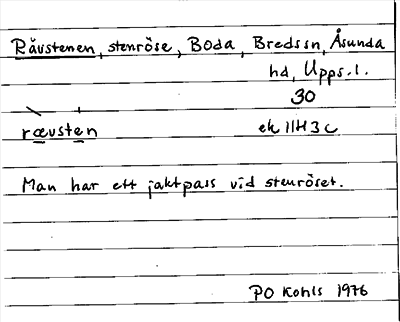 Rävstenen, stenröse, Boda, Bredssn, Åsunda
hd, Upps. l.
30
rævsten
ek 11H3c
Man har ett jaktpass vid stenröset.
PO Kohls 1976